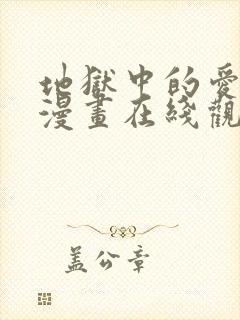 地獄中的愛
漫畫在綫觀
蓋公章